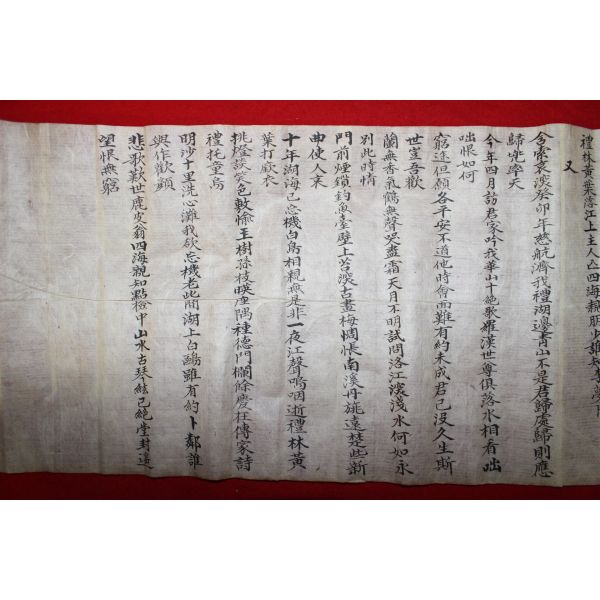 禮林黃葉落江上主人亡四海親朋少
又
含索哀淚癸卯年慈航濟我禮湖邊青山不是君歸處歸則應
歸兜率天
今年四月訪君家吟我華山十絶歌羅漢世尊俱落水相看咄
咄恨如何
窮途但願各平安不道他時會面難有約未成君已沒久生斯
世豈吾歡
蘭無香氣鶴無聲哭盡霜天月不明試問洛江深淺水何如永
別此時情
門前煙鎖釣魚臺壁上苔深古畫梅惆悵南溪丹旐遠楚些新
曲使人哀
十年湖海已忘機白鳥相親無是非一夜江聲嗚咽逝禮林黃
葉打庭衣
挑燈談笑色敷愉玉樹孫枝暎座隅種德門欄餘慶在傳家詩
禮托童烏
明沙十里洗心灘我欲忘機老此間湖上白鷗雖有約卜鄰誰
與作歡顔
悲歌歎世鹿皮翁四海親知點檢中山水古琴絃已絶堂封邊
望恨無窮